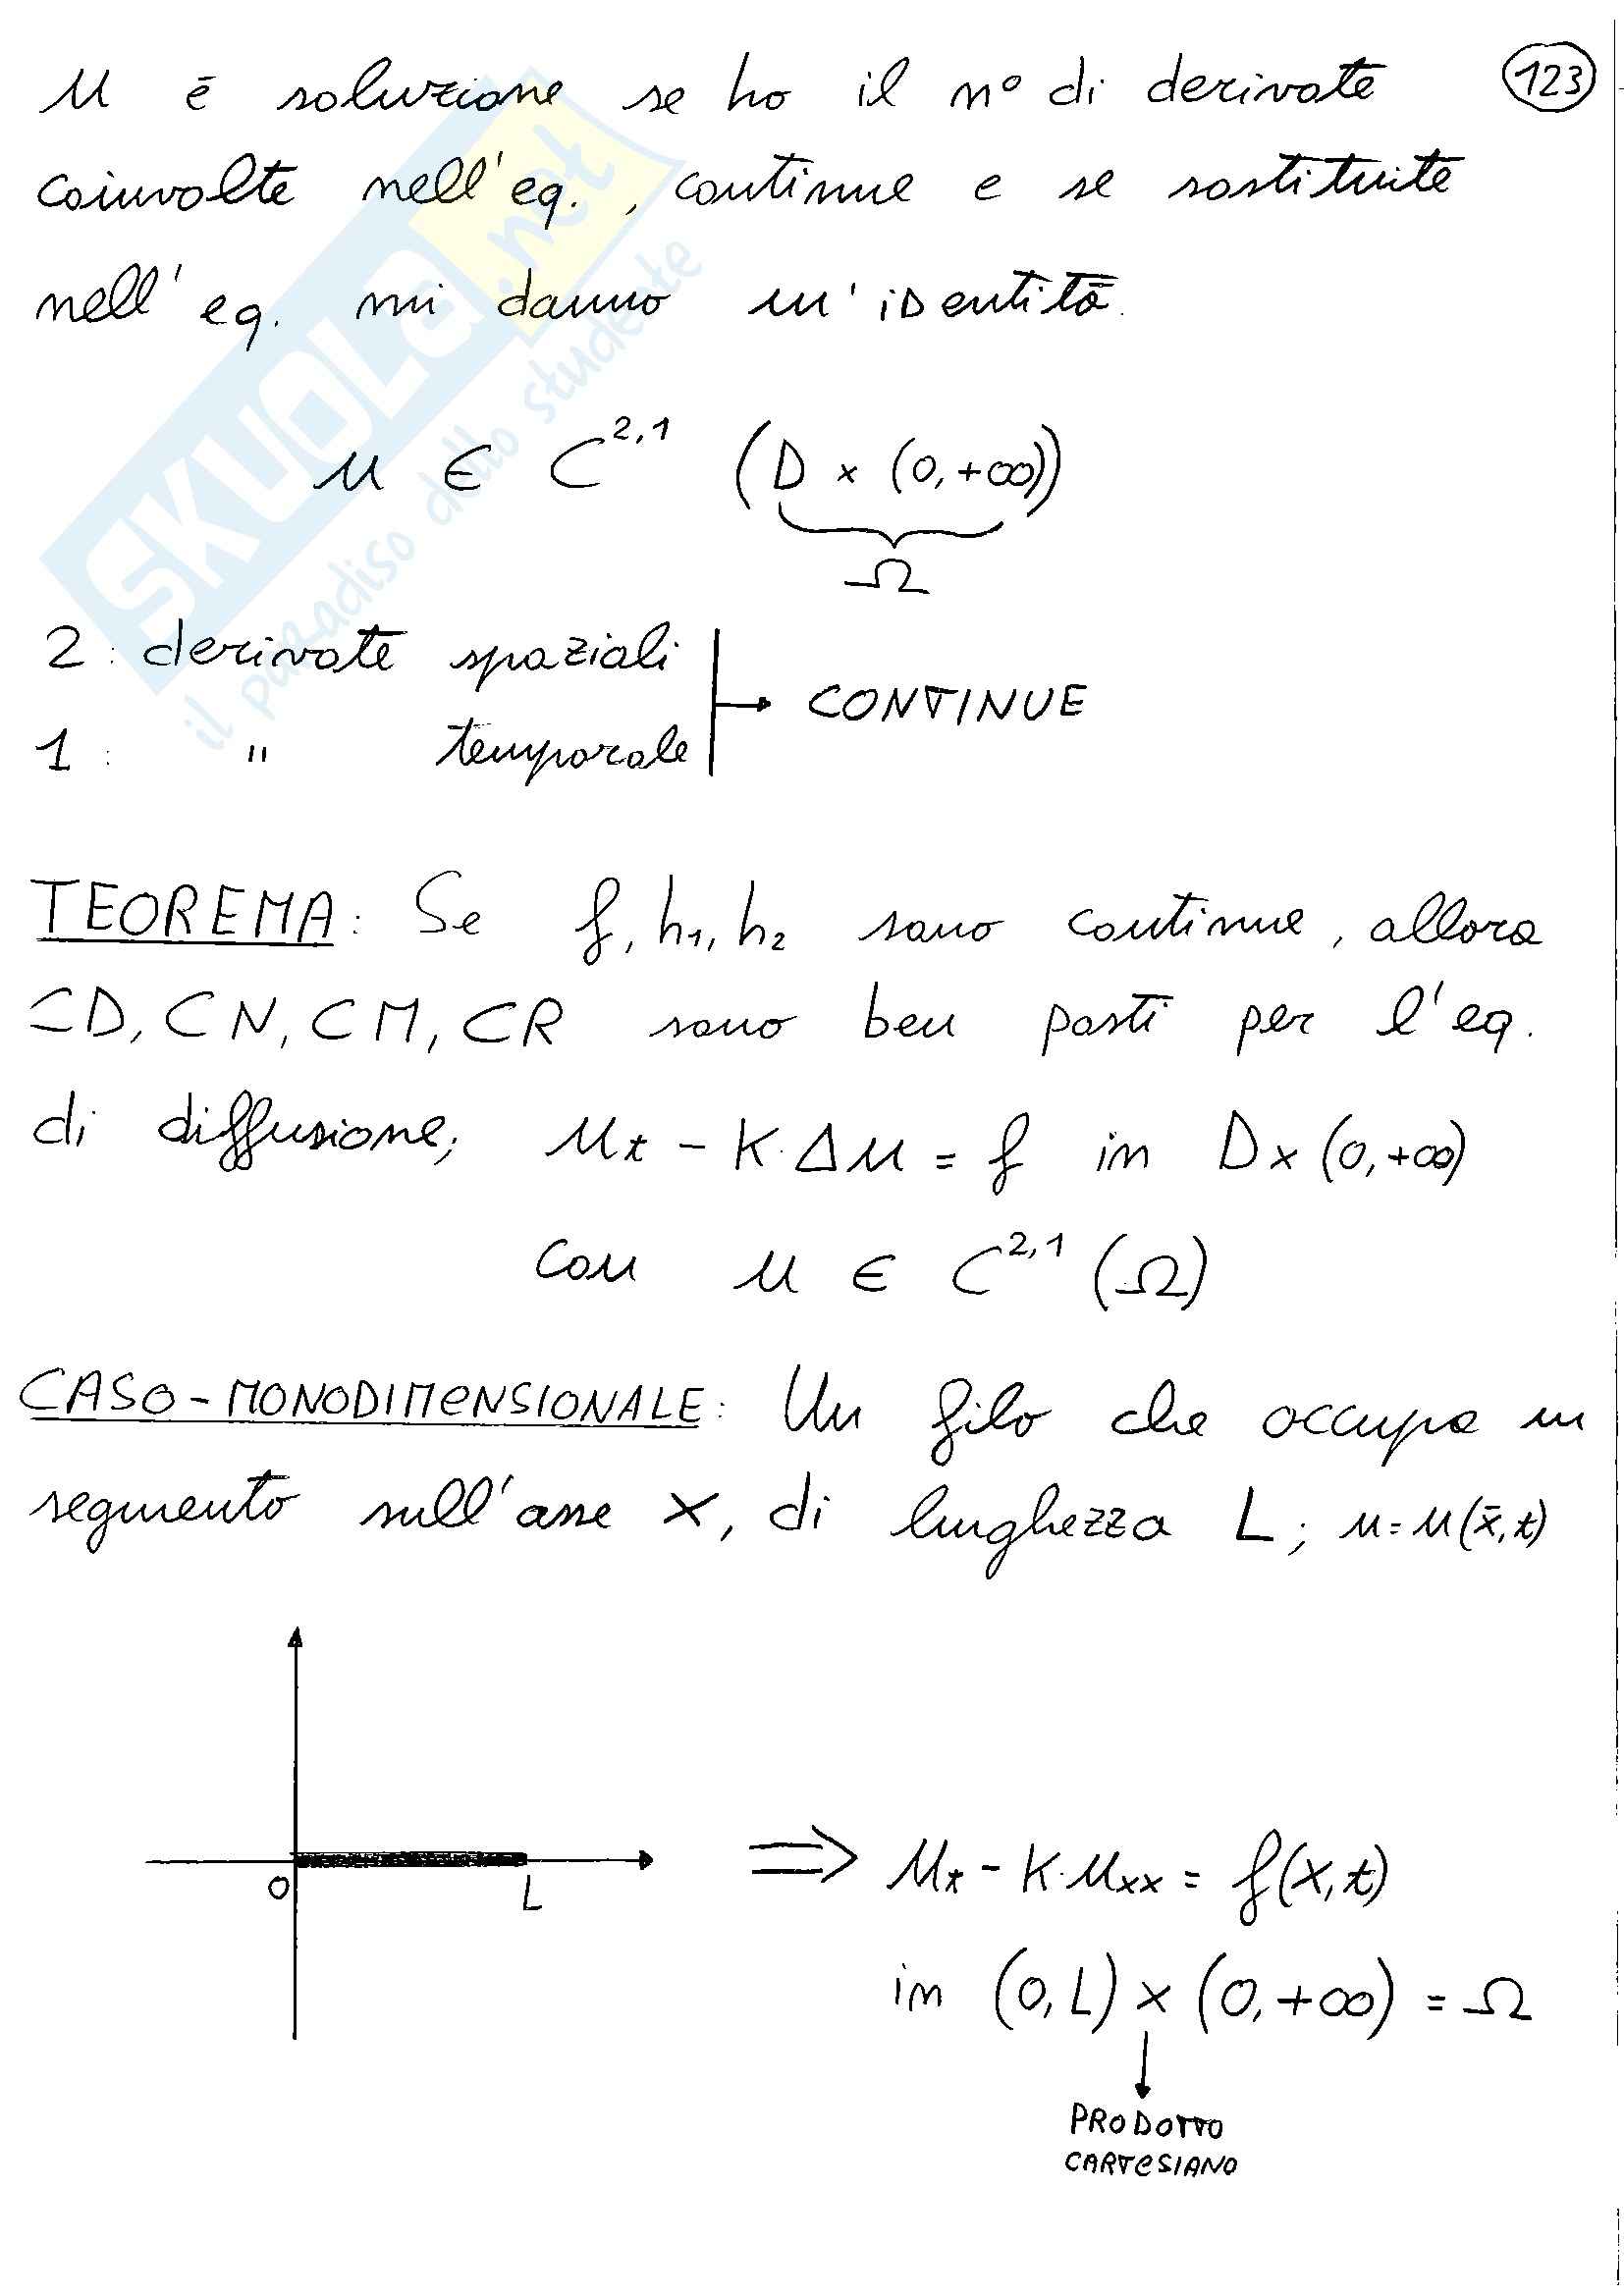 u è soluzione se ho il n° di derivate (123)
coinvolte nell'eq., continue e se sostituite
nell'eq. mi danno un'identità.
u ∈ C^{2,1} (D × (0,+∞))
Ω
2: derivate spaziali
→ CONTINUE
1: " temporale
TEOREMA: Se f, h₁, h₂ sono continue, allora
CD, CN, CM, CR sono ben posti per l'eq.
di diffusione; u_t - K·Δu = f in D×(0,+∞)
con u ∈ C^{2,1} (Ω)
CASO-MONODIMENSIONALE: Un filo che occupa un
segmento sull'asse x, di lunghezza L; u=u(x̄,t)
0 L
⇒ u_t - K·u_xx = f(x,t)
in (0,L) × (0,+∞) = Ω
PRODOTTO
CARTESIANO
SKUOLA.net
il paradiso dello studente